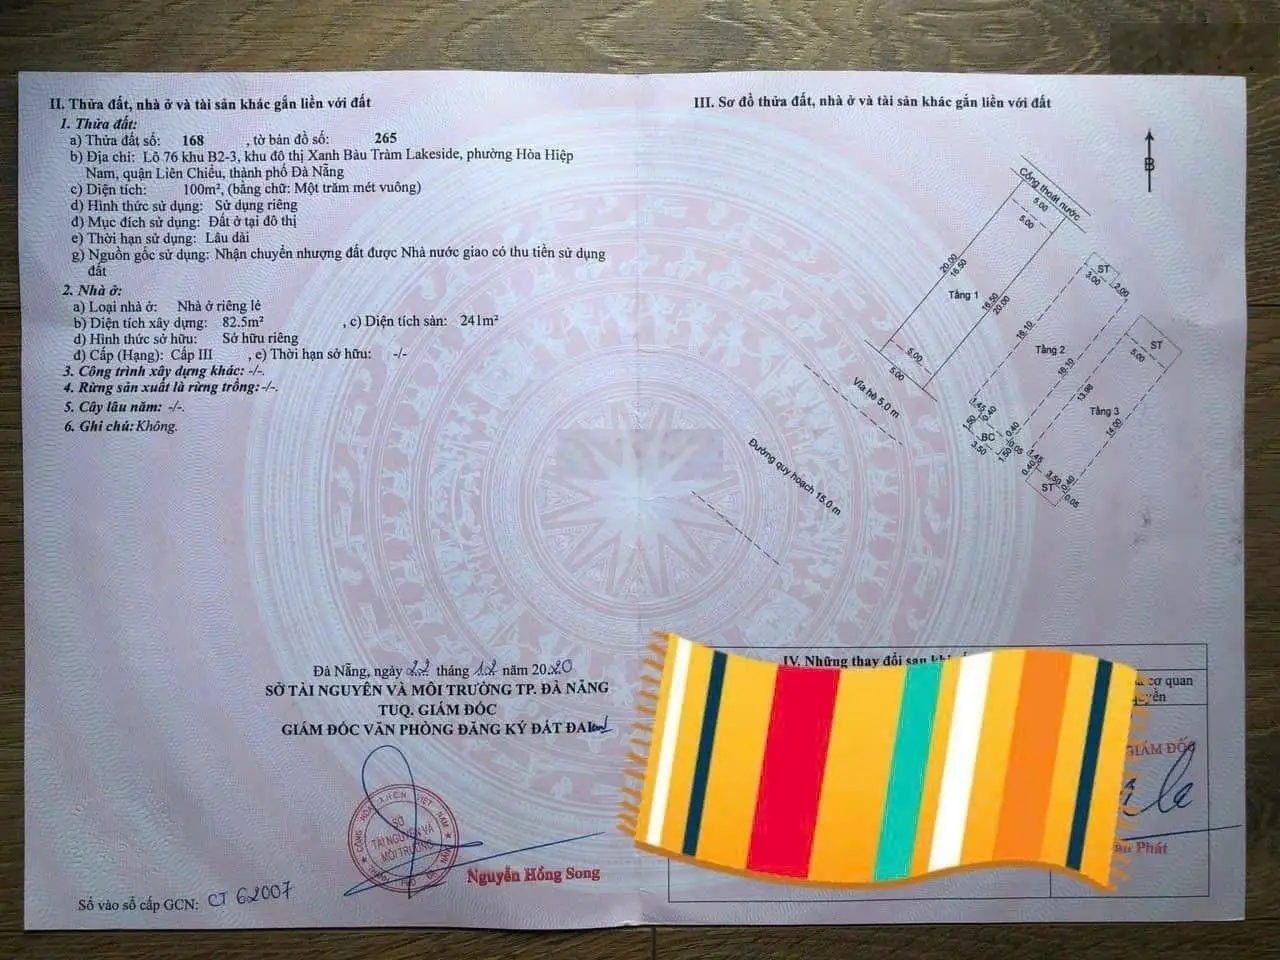 II. Thửa đất, nhà ở và tài sản khác gắn liền với đất
1. Thửa đất:
a) Thửa đất số: 168 , tờ bản đồ số: 265
b) Địa chỉ: Lô 76 khu B2-3, khu đô thị Xanh Bàu Tràm Lakeside, phường Hòa Hiệp
Nam, quận Liên Chiểu, thành phố Đà Nẵng
c) Diện tích: 100m², (bằng chữ: Một trăm mét vuông)
d) Hình thức sử dụng: Sử dụng riêng
đ) Mục đích sử dụng: Đất ở tại đô thị
e) Thời hạn sử dụng: Lâu dài
g) Nguồn gốc sử dụng: Nhận chuyển nhượng đất được Nhà nước giao có thu tiền sử dụng
đất
2. Nhà ở:
a) Loại nhà ở: Nhà ở riêng lẻ
b) Diện tích xây dựng: 82.5m² , c) Diện tích sàn: 241m²
d) Hình thức sở hữu: Sở hữu riêng
đ) Cấp (Hạng): Cấp III , e) Thời hạn sở hữu: -/-
3. Công trình xây dựng khác: -/-.
4. Rừng sản xuất là rừng trồng: -/-.
5. Cây lâu năm: -/-.
6. Ghi chú: Không.
Đà Nẵng, ngày 22 tháng 12 năm 2020
SỞ TÀI NGUYÊN VÀ MÔI TRƯỜNG TP. ĐÀ NẴNG
TUQ. GIÁM ĐỐC
GIÁM ĐỐC VĂN PHÒNG ĐĂNG KÝ ĐẤT ĐAI
SỞ
TÀI NGUYÊN VÀ
MÔI TRƯỜNG
Nguyễn Hồng Song
Số vào sổ cấp GCN: CT 62007
III. Sơ đồ thửa đất, nhà ở và tài sản khác gắn liền với đất
B
Cống thoát nước
5.00
5.00
20.00
16.50
Tầng 1
16.50
20.00
5.00
5.00
ST
3.00
2.00
16.10
Tầng 2
16.10
1.45
0.40
1.50
BC
3.50
0.40
0.05
1.50
ST
5.00
13.98
Tầng 3
14.00
1.45
0.40
3.50
0.40
ST
0.05
Vỉa hè 5.0 m
Đường quy hoạch 15.0 m
IV. Những thay đổi sau khi
cơ quan
quyền
GIÁM ĐỐC
Phát